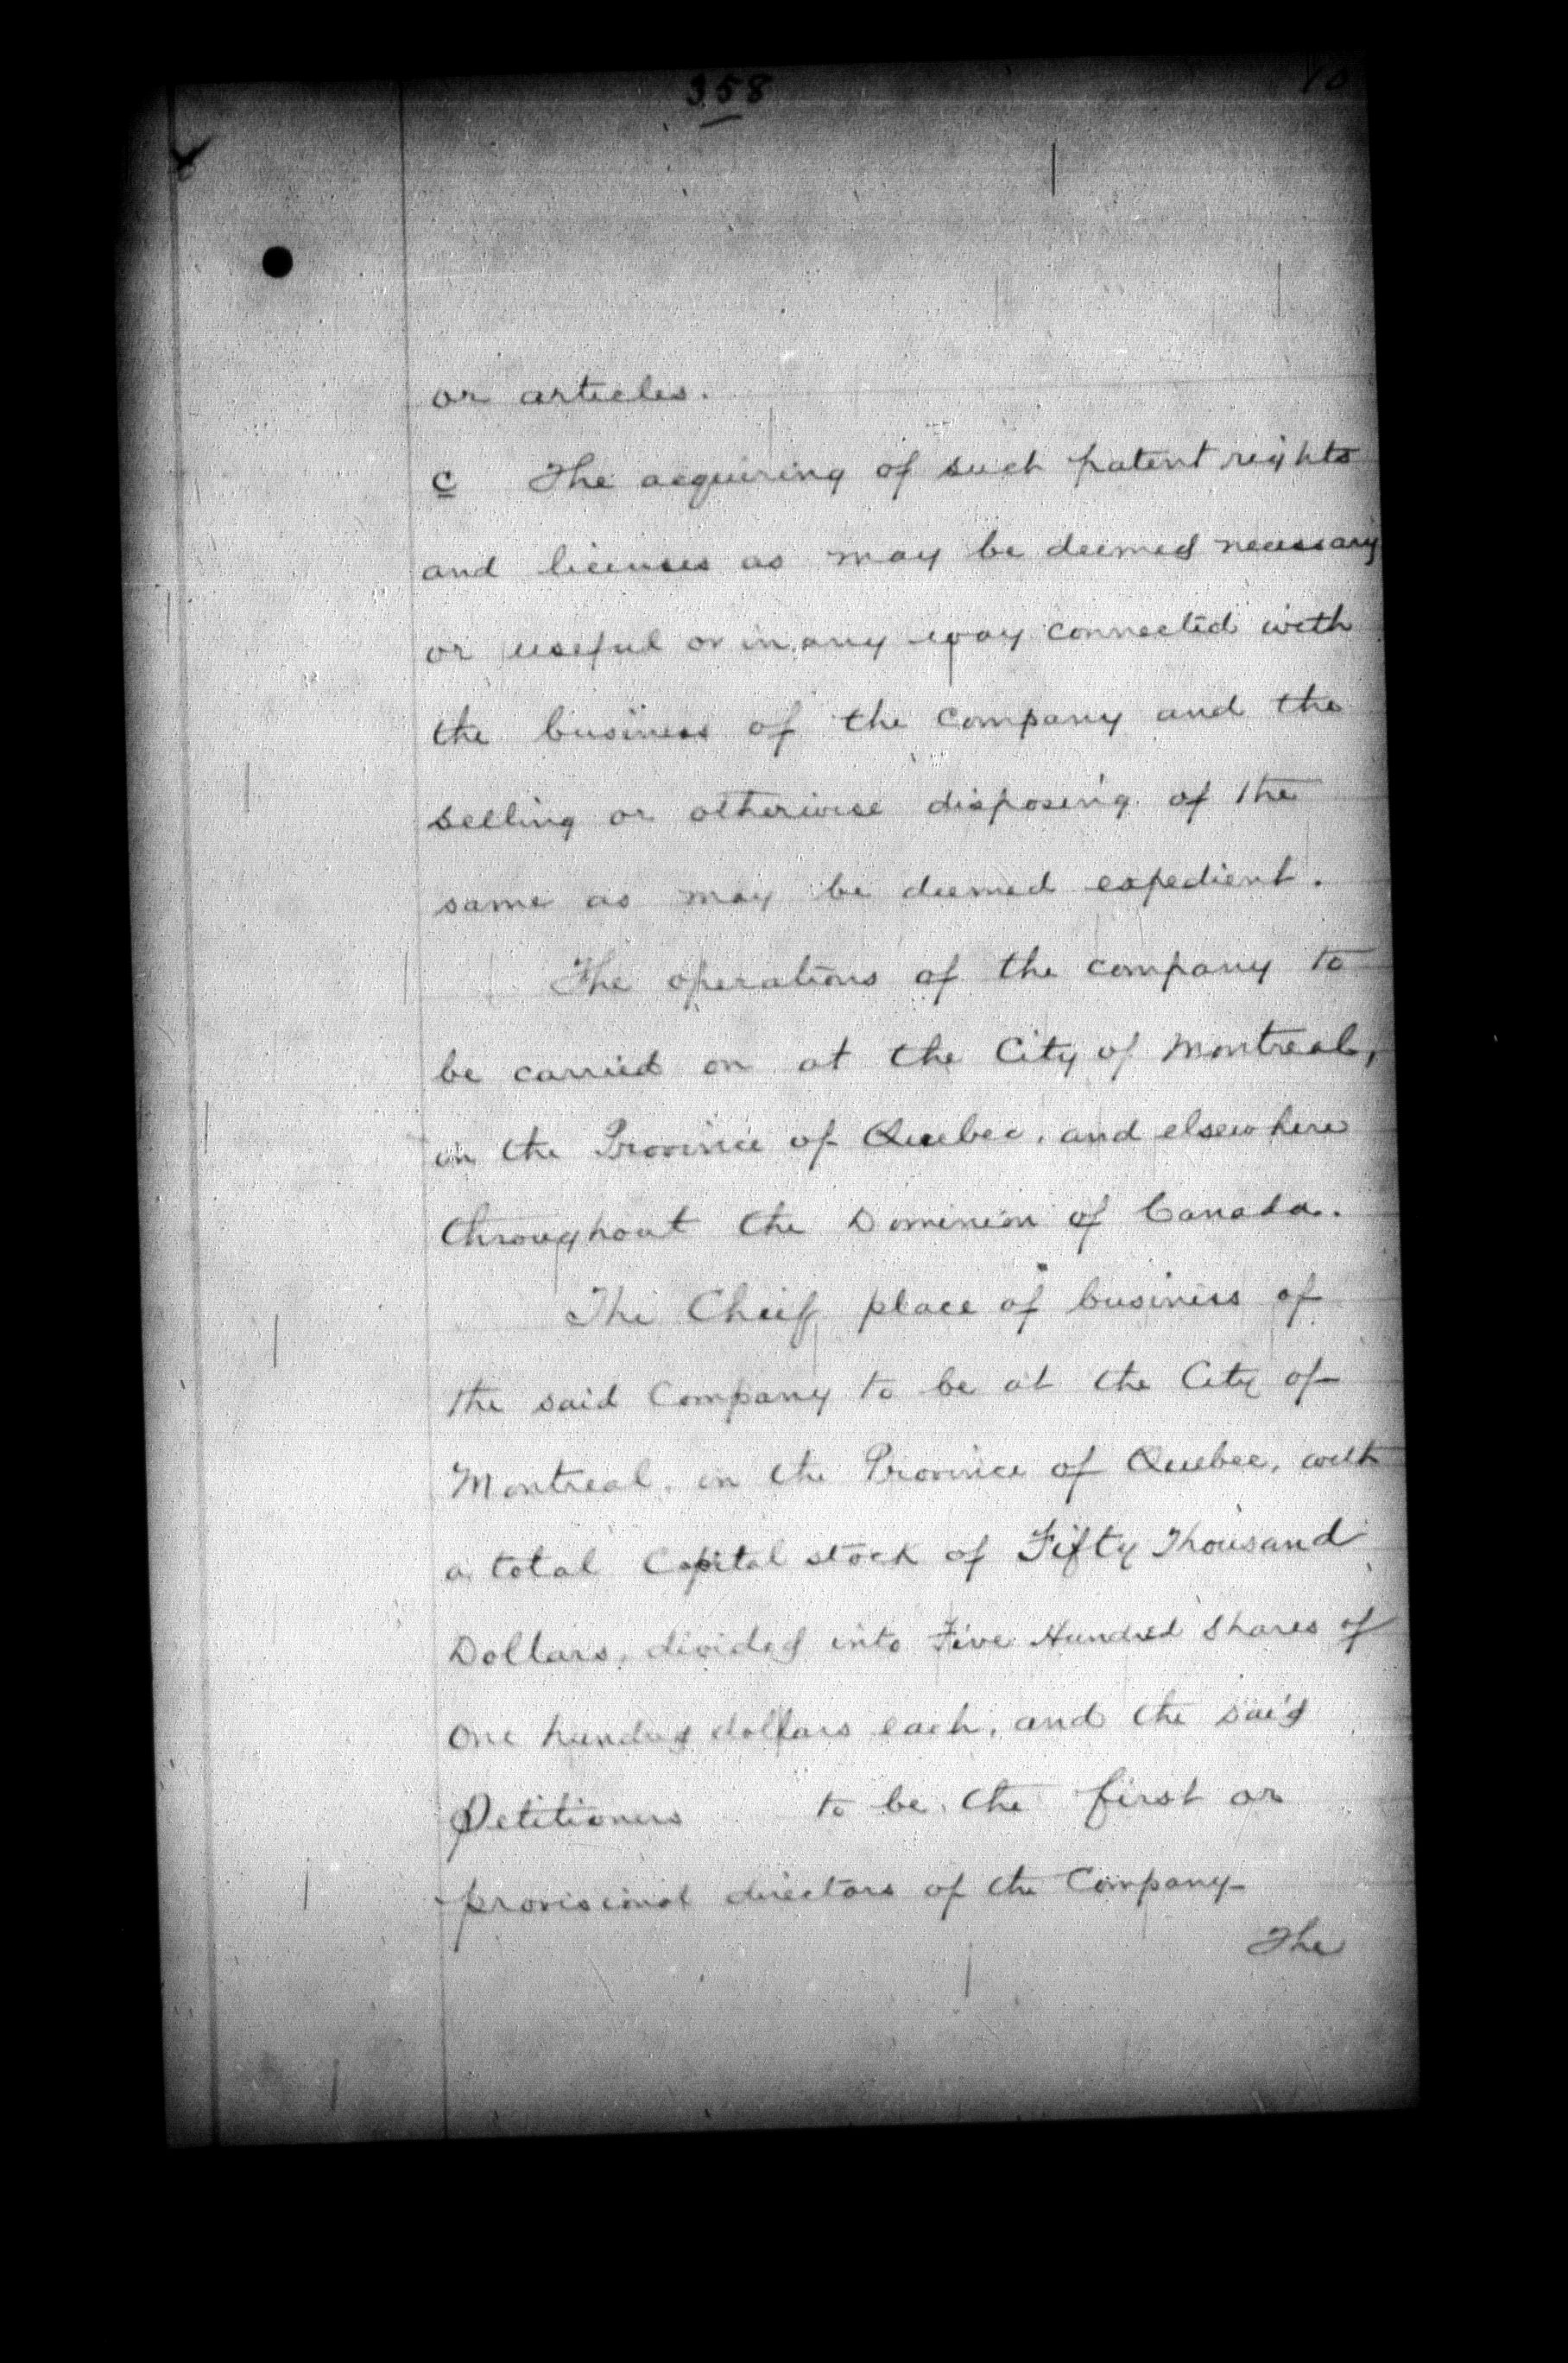 358
10
or articles.
c The acquiring of such patent rights
and licenses as may be deemed necessary
or useful or in any way connected with
the business of the company and the
selling or otherwise disposing of the
same as may be deemed expedient.
The operations of the company to
be carried on at the City of Montreal,
in the Province of Quebec, and elsewhere
throughout the Dominion of Canada.
The Chief place of business of
the said Company to be at the City of
Montreal, in the Province of Quebec, with
a total Capital stock of Fifty Thousand
Dollars, divided into Five Hundred Shares of
One hundred dollars each, and the said
Petitioners to be the first or
provisional directors of the Company
The